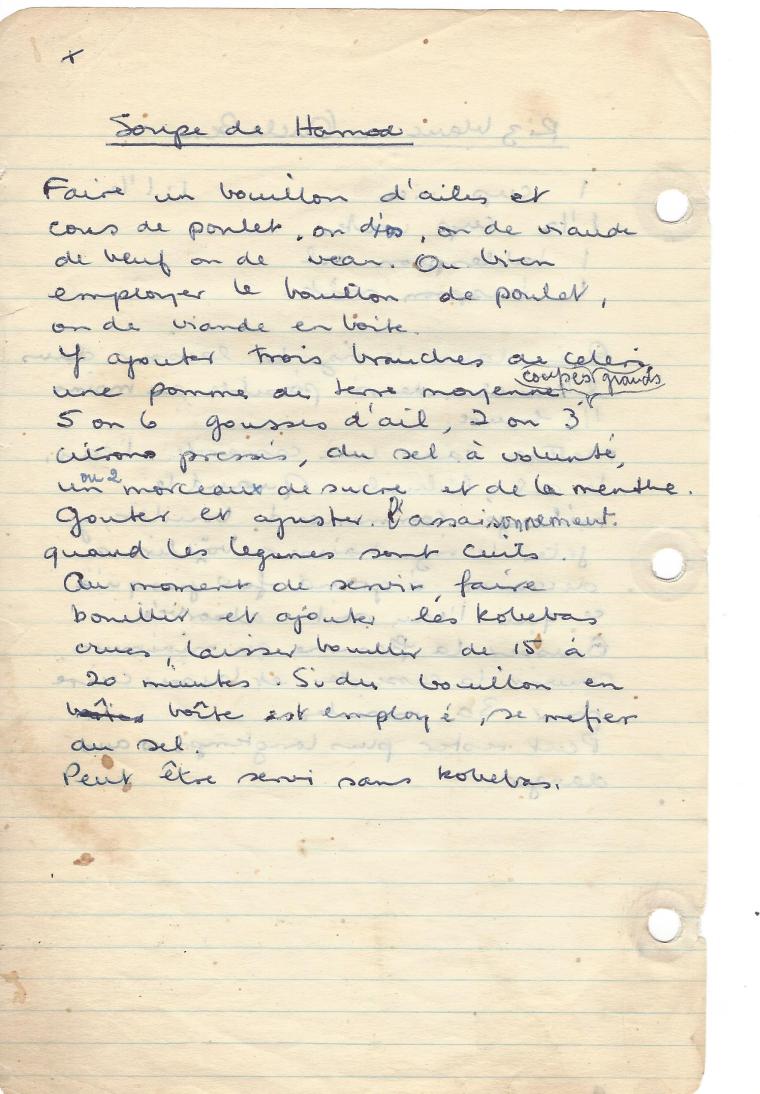 x
Soupe de Hamod
Faire un bouillon d'ailes et
cous de poulet, ou d'os, ou de viande
de beuf ou de veau. Ou bien
employer le bouillon de poulet,
ou de viande en boite.
Y ajouter trois branches de celeri
une pomme de terre moyenne coupés grands
5 ou 6 gousses d'ail, 2 ou 3
citrons pressés, du sel à volunté,
un ou 2 morceaux de sucre et de la menthe.
Gouter et ajuster l'assaisonnement.
quand les legumes sont cuits.
Au moment de servir, faire
bouillir et ajouter les kobebas
crues, laisser bouillir de 15 à
20 minutes. Si du bouillon en
boîte est employé, se mefier
du sel.
Peut être servi sans kobebas.